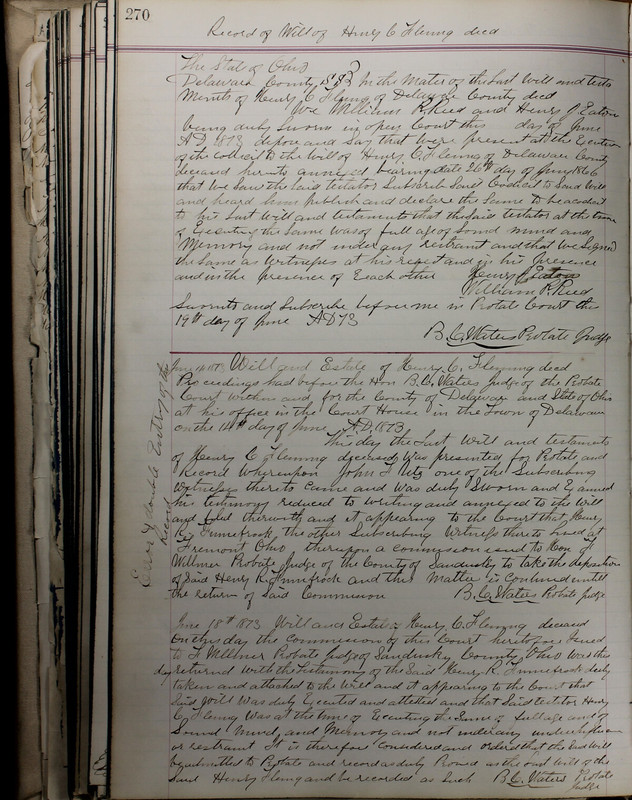 270
Record of Will of Henry C Fleming decd
The Stat of Ohio
Delaware County SS In the Mater of the Last Will and testa
Ments of Henry C Fleming of Delaware County decd
We William R. Reed and Henry J Eaton
being duly Sworn in open Court this day of June
AD 1873 depose and Say that were present at the Execution
of the codicil to the Will of Henry C. Fleming of Delaware County
deceased hereto annexed bearing date 26th day of June 1866
that we Saw the said testator Subscrib Said Codicil to Said Will
and heard him publish and declare the Same to be a codicil
to his Last Will and testaments that the said testator at the time
of Executing the Same was of full age of Sound mind and
Memory and not under any restrant and that we Signed
the Same as Witnesses at his request and in his presence
and in the presence of Each other Henry J Eaton
William R. Reed
Swornto and Subscribe before me in Probat Court this
19th day of June AD 73
B. C. Waters Probate Judge
June 14 1873 Will and Estate of Henry C. Fleming decd
Proceedings had before the Hon B. C. Waters Judge of the Probate
Court within and for the County of Delaware and State of Ohio
at his office in the Court House in the Town of Delaware
on the 14th day of June A.D. 1873
This day the Last Will and testaments
of Henry C Fleming deceased was presented for Probate and
Record Whereupon John F Utz one of the Subscribing
Witnesses thereto came and was duly Sworn and Examined
his testimony reduced to writing and annexed to the Will
and filed therewith and it appearing to the Court that Henry
R. Finnefrock the other Subscribing Witness thereto lived at
Fremont Ohio thereupon a commission issued to Hon F
Willmer Probate Judge of the County of Sandusky to take the deposition
of Said Henry R. Finnefrock and this Matter is continued until
the return of Said Commission B. C. Waters Probate Judge
Entry of the
Record
June 18th 1873 Will and Estate of Henry C. Fleming deceased
On this day the Commission of this Court heretofore Issued
to F Willmer Probate Judge of Sandusky County Ohio was this
day returned with the testimony of the Said Henry R. Finnefrock duly
taken and attached to the Will and it appearing to the Court that
Said Will was duly Executed and attested and that Said testator Henry
C Fleming was at the time of Executing the Same of full age and of
Sound Mind and Memory and not under any undue influence
or restraint It is therefore Considered and Ordered that the Said Will
be admitted to Probate and record as duly Proved as the last Will of the
Said Henry Fleming and be recorded as Such B. C. Waters Probate
Judge